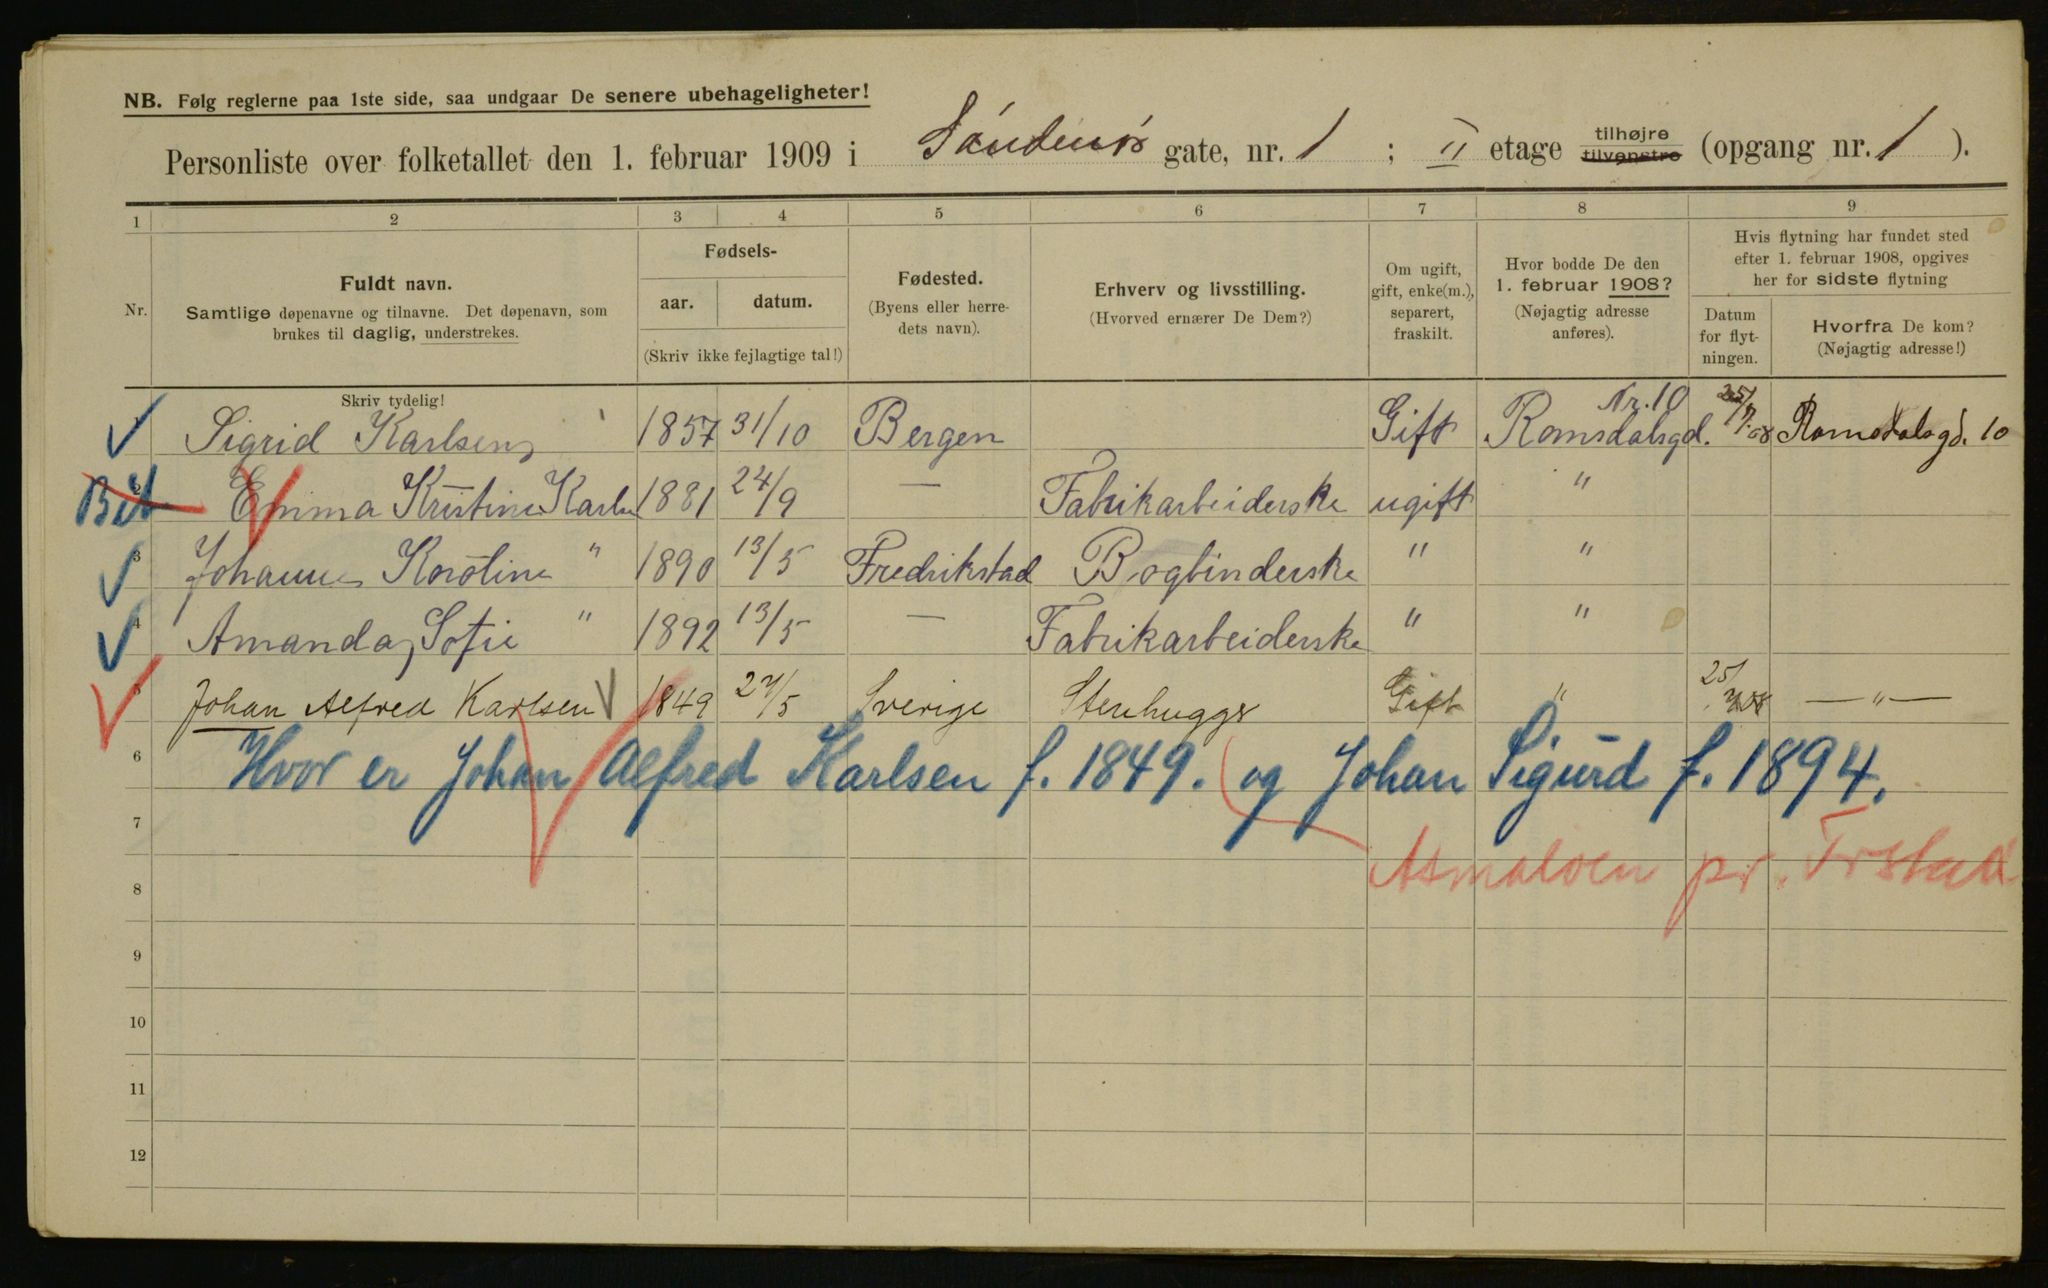 NB. Følg reglerne paa 1ste side, saa undgaar De senere ubehageligheter!
Personliste over folketallet den 1. februar 1909 i gate, nr. 1 ; II etage tilhøjre tilvenstre (opgang nr. 1 ).
1 2 3 4 5 6 7 8 9
Nr.
Fuldt navn.
Samtlige døpenavne og tilnavne. Det døpenavn, som
brukes til daglig, understrekes.
Fødsels-
aar. datum.
(Skriv ikke fejlagtige tal!)
Fødested.
(Byens eller herre-
dets navn).
Erhverv og livsstilling.
(Hvorved ernærer De Dem?)
Om ugift,
gift, enke(m.),
separert,
fraskilt.
Hvor bodde De den
1. februar 1908?
(Nøjagtig adresse
anføres).
Hvis flytning har fundet sted
efter 1. februar 1908, opgives
her for sidste flytning
Datum
for flyt-
ningen.
Hvorfra De kom?
(Nøjagtig adresse!)
Skriv tydelig!
Sigrid Karlsen 1857 31/10 Bergen Gift Romsdalsgd. Nr. 10 25/7.08 Romsdalsgd. 10
2 Emma Kristine Karlsen 1881 24/9 — Fabrikarbeiderske ugift "
3 Johanne Karoline " 1890 13/5 Fredrikstad Bogbinderske " "
4 Amanda Sofie " 1892 13/5 — Fabrikarbeiderske " "
5 Johan Alfred Karlsen 1849 27/5 Sverige Stenhugger Gift " 25/ — " —
6 Hvor er Johan Alfred Karlsen f. 1849. og Johan Sigurd f. 1894.
7
Asmaloen pr. Frstad
8
9
10
11
12